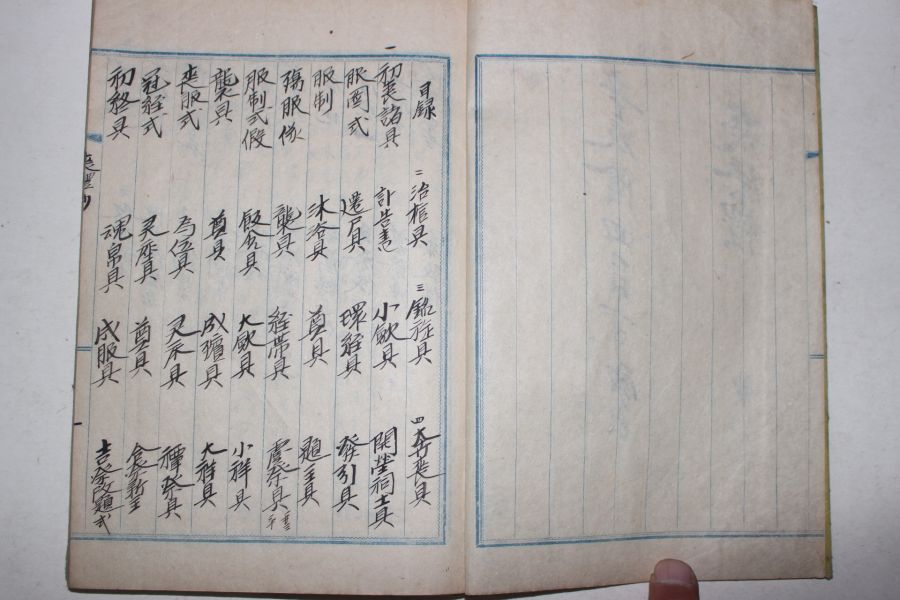 一
目錄 二 治棺具 三 銘旌具 四 奔喪具
初喪諸具 訃告書 小歛具 開塋祠土具
服圖式 遷尸具 環絰具 發引具
服制 沐浴具 奠具 題主具
殤服 襲具 絰帶具 虞祭具
服制式假 飯含具 大歛具 小祥具
襲具 奠具 成殯具 大祥具
喪服式 为位具 灵床具 禫祭具
冠絰式 灵座具 奠具
初終具 魂帛具 成服具 吉祭改題式
喪禮抄